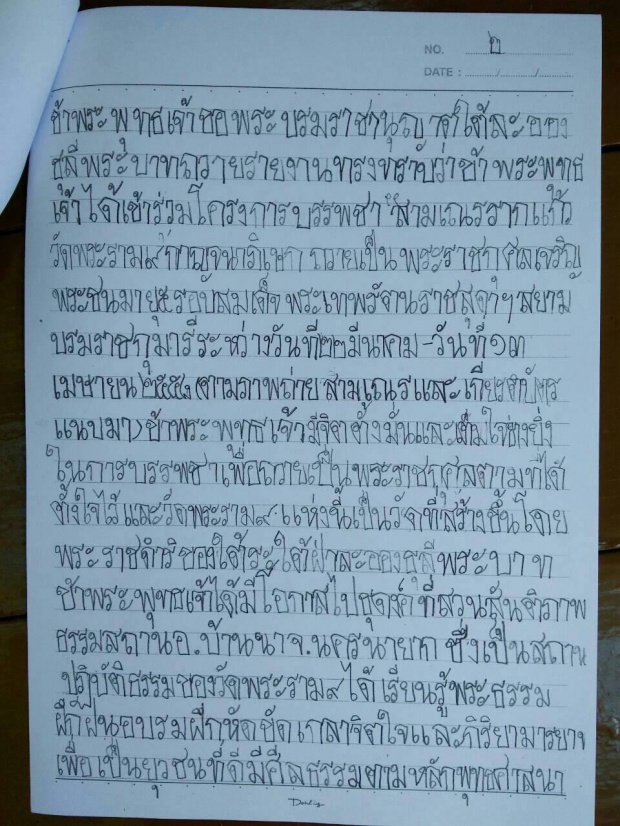 NO. ๒
DATE : ....../....../......
ข้าพระพุทธเจ้าขอพระบรมราชานุญาตใต้ละออง
ธุลีพระบาทถวายรายงานทรงทราบว่าข้าพระพุทธ
เจ้าได้เข้าร่วมโครงการบรรพชา"สามเณรรากแก้ว
วัดพระราม๙กาญจนาภิเษก ถวายเป็นพระราชกุศลเจริญ
พระชนมายุ๕รอบสมเด็จพระเทพรัตนราชสุดาฯสยาม
บรมราชกุมารีระหว่างวันที่๒๒มีนาคม-วันที่๑๓
เมษายน๒๕๕๘(ตามภาพถ่ายสามเณรและเกียรติบัตร
แนบมา)ข้าพระพุทธเจ้ามีจิตตั้งมั่นและเต็มใจอย่างยิ่ง
ในการบรรพชาเพื่อถวายเป็นพระราชกุศลตามที่ได้
ตั้งใจไว้และวัดพระราม๙แห่งนี้เป็นวัดที่สร้างขึ้นโดย
พระราชดำริของใต้ฝ่าละอองธุลีพระบาท
ข้าพระพุทธเจ้าได้มีโอกาสไปธุดงค์ที่สวนสันติภาพ
ธรรมสถานอ.บ้านนาจ.นครนายกซึ่งเป็นสถาน
ปฏิบัติธรรมของวัดพระราม๙ได้เรียนรู้พระธรรม
ฝึกฝนอบรมฝึกหัดขัดเกลาจิตใจและกิริยามารยาท
เพื่อเป็นยุวชนที่ดีมีศีลธรรมตามหลักพุทธศาสนา